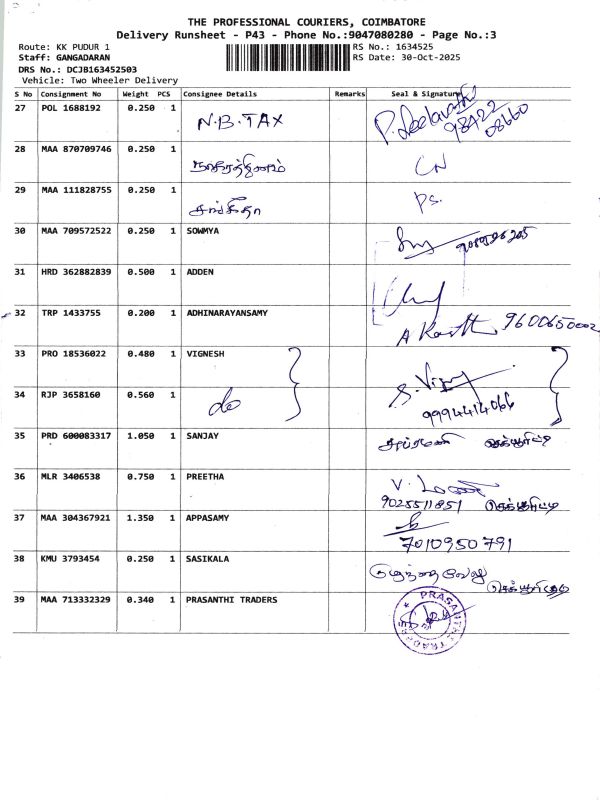 THE PROFESSIONAL COURIERS, COIMBATORE
Delivery Runsheet - P43 - Phone No.:9047080280 - Page No.:3
Route: KK PUDUR 1
RS No.: 1634525
Staff: GANGADARAN
RS Date: 30-Oct-2025
DRS No.: DCJB163452503
Vehicle: Two Wheeler Delivery
S No Consignment No Weight PCS Consignee Details Remarks Seal & Signature
27 POL 1688192 0.250 1 N.B.TAX P. Leelavathi
98422
08660
28 MAA 870709746 0.250 1 CN
29 MAA 111828755 0.250 1 சங்கீதா Ps.
30 MAA 709572522 0.250 1 SOWMYA
31 HRD 362882839 0.500 1 ADDEN
32 TRP 1433755 0.200 1 ADHINARAYANSAMY A Karthi 9600650002
33 PRO 18536022 0.480 1 VIGNESH S. Vijay
34 RJP 3658160 0.560 1 do 9994414066
35 PRD 600083317 1.050 1 SANJAY
36 MLR 3406538 0.750 1 PREETHA V. மணி
9025511851 செக்யூரிட்டி
37 MAA 304367921 1.350 1 APPASAMY
7010950791
38 KMU 3793454 0.250 1 SASIKALA குழந்தைவேலு
செக்யூரிட்டி
39 MAA 713332329 0.340 1 PRASANTHI TRADERS
PRASANTHI TRADERS